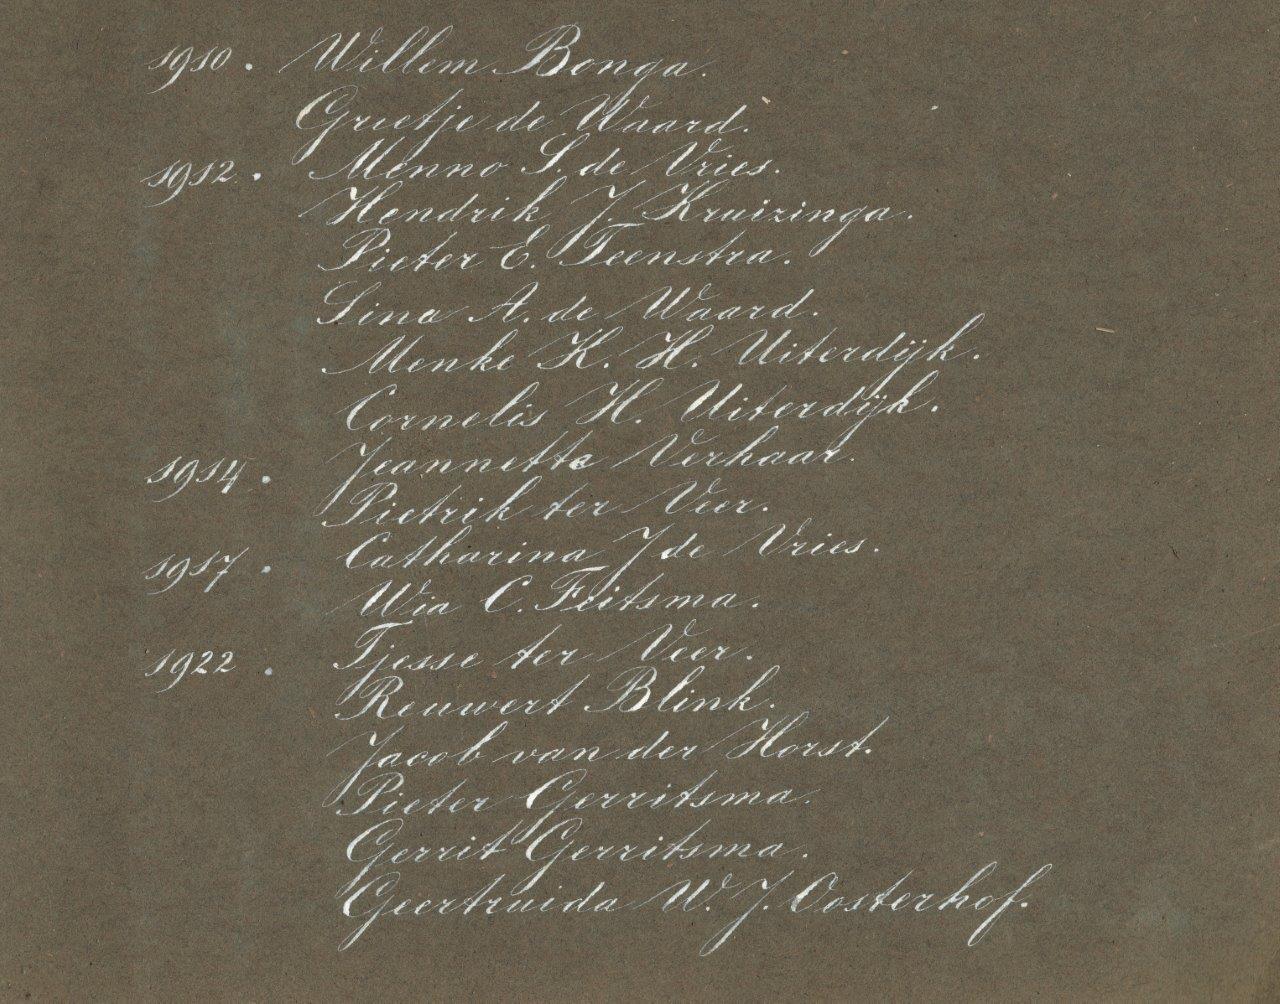 1910. Willem Bonga.
Grietje de Waard.
1912. Menno S. de Vries.
Hendrik J. Kruizinga.
Pieter E. Teenstra.
Sina A. de Waard.
Menke K. H. Uiterdijk.
Cornelis H. Uiterdijk.
1914. Jeannette Verhaar.
Pietrik ter Veer.
1917. Catharina J de Vries.
Wia C. Feitsma.
1922. Tjesse ter Veer.
Reuwert Blink.
Jacob van der Horst.
Pieter Gerritsma.
Gerrit Gerritsma.
Geertruida W. J. Oosterhof.